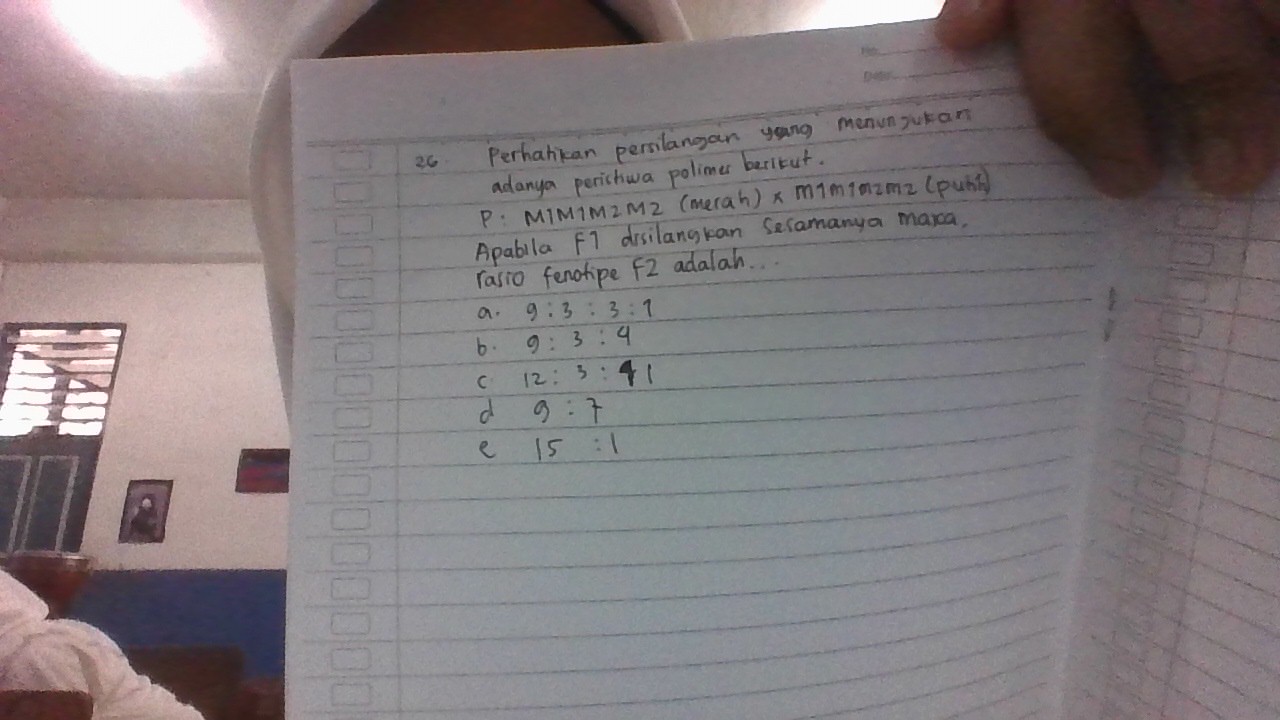 No.
Date.
26. Perhatikan persilangan yang menunjukan
adanya peristiwa polimer berikut.
P: M1M1M2M2 (merah) x m1m1m2m2 (putih)
Apabila F1 disilangkan sesamanya maka,
rasio fenotipe F2 adalah...
a. 9 : 3 : 3 : 1
b. 9 : 3 : 4
c. 12 : 3 : 1
d 9 : 7
e 15 : 1